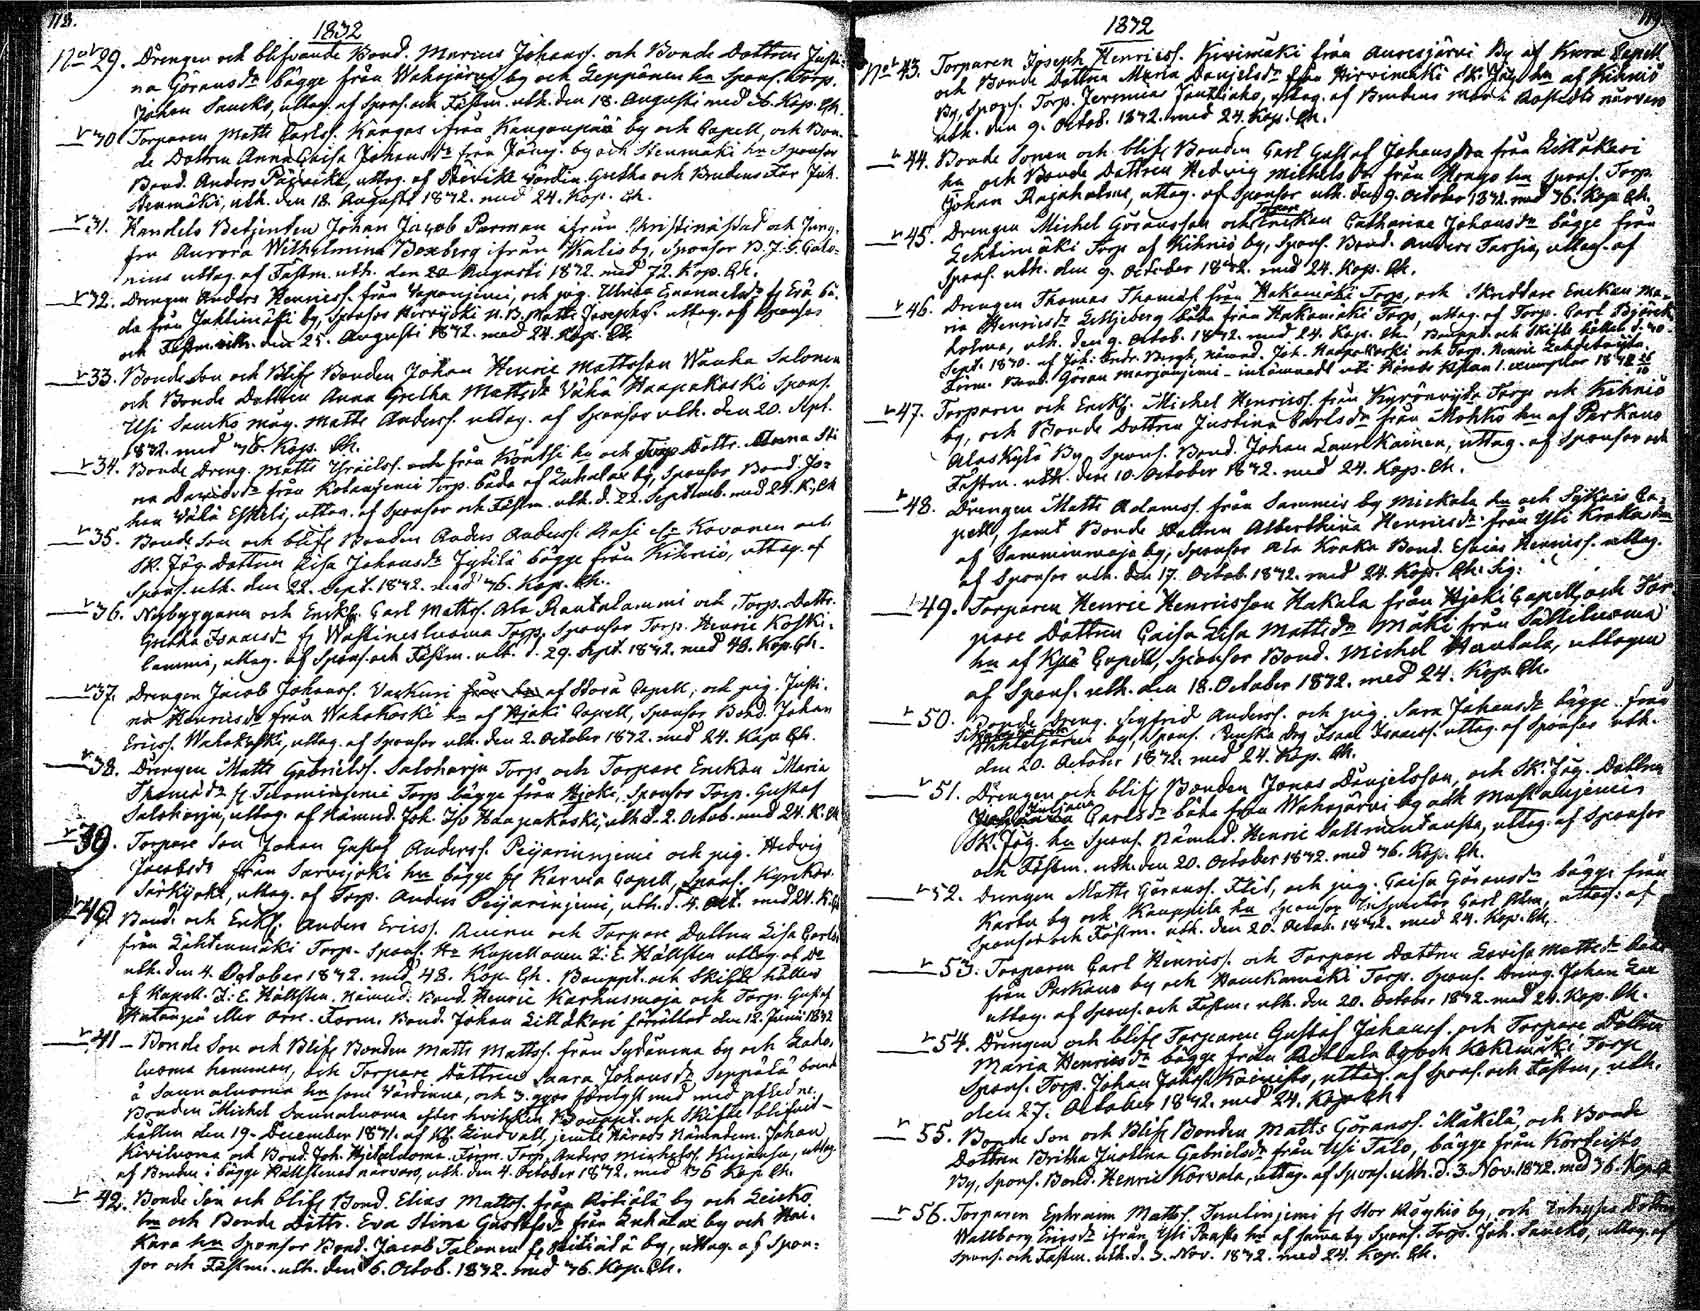 118.
1832
No 29. Drengen och blifvande Bond. Marcus Johanss. och Bonde Dottren Justi-
na Göransdr bägge från Wahojärvi by och Leppänen hn Spons. Torp.
Johan Saucko, uttag. af Spons. och Fästm. utb. den 18. Augusti med 36. Kop. Ch.
30. Torparen Matts Carlss. Kangas ifrån Kangonpää by och Capell, och Bon-
de Dottren Anna Caisa Johansdr från by och Stenmäki hn Sponsor
Bond. Anders uttag. af Gretha och Brudens Far Joh.
Stenmäki, utb. den 18. Augusti 1832. med 24. Kop. Ch.
31. Handels Betjenten Johan Jacob Parman ifrån Christinæstad och Jung-
fru Aurora Wilhelmina Boxberg ifrån by, Sponsor B. J. G. Calo-
nius uttag. af Fästm. utb. den 20 Augusti 1832. med 72. Kop. Ch.
32. Drengen Anders Henricss. från och pig. Ulrica
från by, Sponsor N.B. Matts Josephss. uttag. af Sponsor
och Fästm. utb. den 25. Augusti 1832. med 24. Kop. Ch.
33. Bonde Son och Blifv. Bonden Johan Henric Mattsson Wanha Salonen
och Bonde Dottren Anna Gretha Mattsdr Vähä Haapakoski Spons.
Usi Saucko måg. Matts Anderss. uttag. af Sponsor utb. den 20. Sept.
1832. med 36. Kop. Ch.
34. Bonde Dreng. Matts och från hn och Torp. Dottr. Anna Sti-
na Davidsdr från Torp. båda af Luhalax by, Sponsor Bond. Jo-
han Vähä Eskeli, uttag. af Sponsor och Fästm. utb. d. 22. Septemb. med 24. K. Ch
35. Bonde Son och blifv. Bonden Anders Anderss. Kovanen och
Sk. Jög. Dottren Lisa Johansdr bägge från Kihniö, uttag. af
Spons. utb. den 22. Sept. 1832. med 36. Kop. Ch.
36. Nybyggaren och Enkl. Carl Mattss. Ala Rautalammi och Torp. Dottr.
Gretha Isaacsdr fr Torp, Sponsor Torp. Henric Koski-
lammi, uttag. af Spons. och Fästm. utb. d. 29. Sept. 1832. med 48. Kop. Ch.
37. Drengen Jacob Johanss. Vaskuri från hn af Storå Capell, och pig. Justi-
na Henricsdr från Wahakoski hn af Hjoki Capell, Sponsor Bond. Johan
Ericss. Wahakoski, uttag. af Sponsor utb. den 2. October 1832. med 24. Kop. Ch.
38. Drengen Matts Gabrielss. Saloharju Torp. och Torpare Enckan Maria
Thomædr fr Tuominiemi Torp. bägge från Hjoki, Sponsor Torp. Gustaf
Saloharju, uttag. af Nämnd. Joh. Iso Haapakoski, utb. d. 2. Octob. med 24. K. Ch
39. Torpare Son Johan Gustaf Anderss. Peijariniemi och pig. Hedvig
Jacobsdr från Sarvijoki hn bägge fr Karvia Capell, Spons. Kyrkov.
Särkijoki, uttag. af Torp. Anders Peijariniemi, utb. d. 4. Oct. med 24. K. Ch
40. Bond. och Enkl. Anders Ericss. och Torpare Dottren Lisa Carls
från Lähtenmäki Torp. Spons. Hr Kapellanen Z: E. Hällsten uttag. af De
utb. den 4. October 1832. med 48. Kop. Ch. Bouppt. och Skifte hållet
af Kapell. Z: E. Hällsten. Nämnd. Bond. Henric Karhusmaja och Torp. Gustaf
Form. Bond. Johan Lill Kari förrättad den 12. Junii 1832
41 – Bonde Son och Blifv. Bonden Matts Mattss. från Sydänma by och Laho-
luoma hemman, och Torpare Dottren Saara Johansdr Seppälä
å Saunaluoma hn som Värdinna, och 3. gros med
Bonden Michel Saunaluoma efter hvilcken Bouppt. och Skifte blifvit
hållen den 19. December 1831. af Kf. Lindvall, jemte Härads Nämndem. Johan
Kiviluoma och Bond. Joh. Form. Torp. Anders Michelss. uttag.
af Bruden i bägge närvaro, utb. den 4. October 1832. med 36 Kop. Ch.
42. Bonde Son och blifv. Bond. Elias Mattss. från by och Leisko
hn och Bonde Dottr. Eva Stina Gustafsdr från Luhalax by och Hai-
kara hn Sponsor Bond. Jacob Talonen fr by, uttag. af Spon-
sor och Fästm. utb. den 6. Octob. 1832. med 36. Kop. Ch.
119.
1832
No 43. Torparen Joseph Henricss. Kivimäki från Aurejärvi By af Kuru Capell
och Bonde Dottren Maria Danjelsdr från Hirvimäki Sk. Jög. hn af Kihniö
By, Spons. Torp. Jeremias uttag. af Brudens Mor i närvaro
utb. den 9. Octob. 1832. med 24. Kop. Ch.
44. Bonde Sonen och blifv. Bonden Carl Gustaf Johansson från Lill Kari
hn och Bonde Dottren Hedvig Michelsdr från Kongo hn Spons. Torp.
Johan Rajaholma, uttag. af Sponsor utb. den 9. October 1832. med 36. Kop. Ch.
45. Drengen Michel Göransson och Enckan Catharina Johansdr bägge från
Lehtimäki Torp af Kihniö by, Spons. Bond. Anders Tarsia, uttag. af
Spons. utb. den 9. October 1832. med 24. Kop. Ch.
46. Drengen Thomas Thomæs. från Hakamäki Torp, och Skräddare Enckan Ma-
ria Henricsdr Liljeberg båda från Hakamäki Torp, uttag. af Torp. Carl Björck-
holma, utb. den 9. Octob. 1832. med 24. Kop. Ch. Bouppt. och Skifte hållet d. 30.
Sept. 1830. af Joh. Andr. Bergh, nämnd. Joh. Haapakoski och Torp. Henric
Form. Bond. Göran Marjoniemi – inlämnadt uti Härads Kistan 1. exemplar 1832
47. Torparen och Enkl. Michel Henricss. från Torp och Kihniö
by, och Bonde Dottren Justina Carlsdr från Mohko hn af Parkano
Alas Kylä By Spons. Bond. Johan uttag. af Sponsor och
Fästm. utb. den 10. October 1832. med 24. Kop. Ch.
48. Drengen Matts Adamss. från Sammis by Mickala hn och Ca-
pell, samt Bonde Dottren Albertina Henricsdr från Usi Kraka hn
af Samminmaja by, Sponsor Ala Kraka Bond. Esaias Henricss. uttag.
af Sponsor utb. den 17. Octob. 1832. med 24. Kop. Ch. Sig:
49. Torparen Henric Henricsson Hakala från Hjoki Capell, och Tor-
pare Dottren Caisa Lisa Mattsdr Mäki från Sättiluoma
hn af Kyrö Capell, Sponsor Bond. Michel Hautala, uttagen
af Spons. utb. den 18. October 1832. med 24. Kop. Ch.
50. Bonde Dreng. Sigfrid Anderss. och pig. Sara Johansdr bägge från
by, Spons. Isaac Isaacss. uttag. af Sponsor utb.
den 20. October 1832. med 24. Kop. Ch.
51. Drengen och blifv. Bonden Jonas Danjelsson, och Sk. Jög. Dottren
Juliana Carlsdr båda från Wahojärvi by och
Sk. Jög. hn Spons. Nämnd. Henric uttag. af Sponsor
och Fästm. utb. den 20. October 1832. med 36. Kop. Ch.
52. Drengen Matts Göranss. och pig. Caisa Göransdr bägge från
Karbi by och Kauppila hn Sponsor Inspector Carl Alm, uttag. af
Sponsor och Fästm. utb. den 20. Octob. 1832. med 24. Kop. Ch.
53. Torparen Carl Henricss. och Torpare Dottren Lovisa Mattsdr båda
från Parkano by och Torp. Spons. Dreng. Johan
uttag. af Spons. och Fästm. utb. den 20. October 1832. med 24. Kop. Ch.
54. Drengen och blifv. Torparen Gustaf Johanss. och Torpare Dottren
Maria Henricsdr bägge från by och Kekimäki Torp
Spons. Torp. Johan Johss. Koivisto, uttag. af Spons. och Fästm, utb.
den 27. October 1832. med 24. Kop. Ch.
55. Bonde Son och Blifv. Bonden Matts Göranss. Mäkilä, och Bonde
Dottren Britha Justina Gabrielsdr från Usi Talo, bägge från Korfeisko
By, Spons. Bond. Henric Korvala, uttag. af Spons. utb. d. 3. Nov. 1832. med 36. Kop. Ch
56. Torparen Ephraim Mattss. fr Stor Röyhiö by, och Inhyses Dottren
Wallborg Ericsdr ifrån Usi hn af sama by Spons. Torp. Joh. Saucko, uttag. af
Spons. och Fästm. utb. d. 3. Nov. 1832. med 24. Kop. Ch.